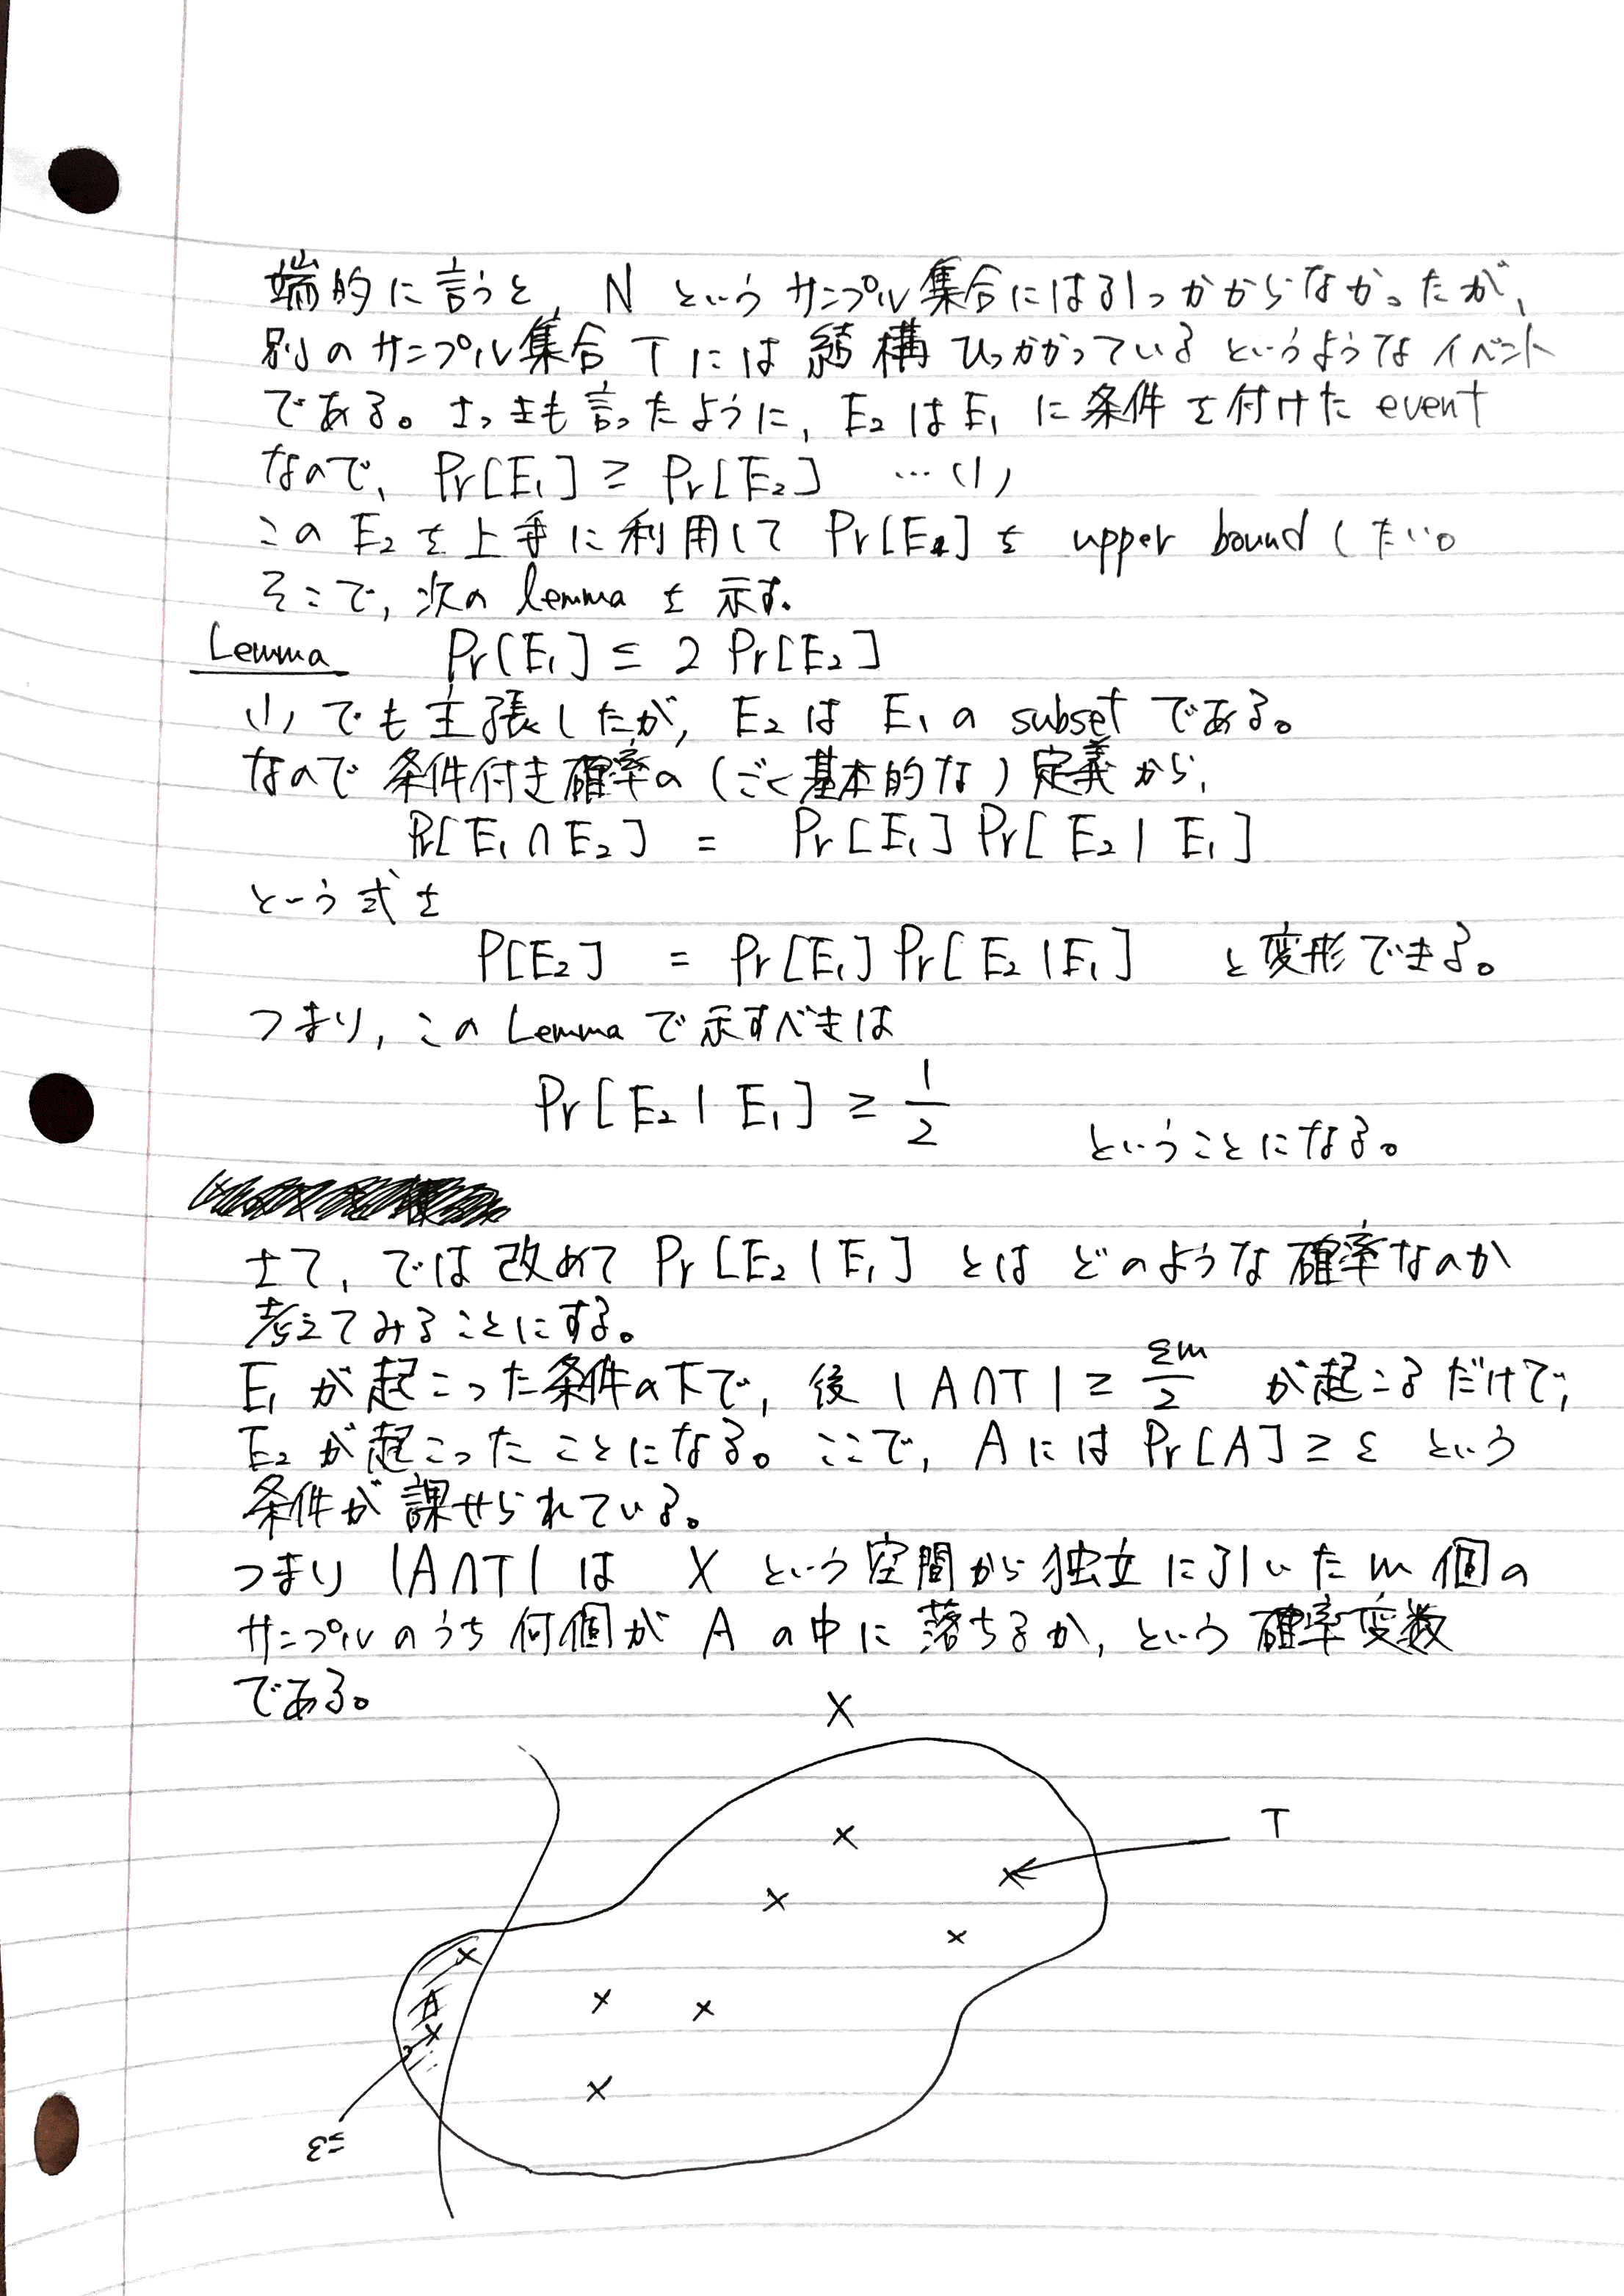 端的に言うと, N というサンプル集合には引っかからなかったが,
別のサンプル集合 T には結構ひっかかっているというようなイベント
である。さっきも言ったように, E₂ は E₁ に条件を付けた event
なので, Pr[E₁] ≥ Pr[E₂] …(1)
この E₂ を上手に利用して Pr[E₁] を upper bound したい。
そこで, 次の lemma を示す。
Lemma Pr[E₁] ≤ 2 Pr[E₂]
(1) でも主張したが, E₂ は E₁ の subset である。
なので条件付き確率の (ごく基本的な) 定義から,
Pr[E₁ ∩ E₂] = Pr[E₁] Pr[E₂ | E₁]
という式を
P[E₂] = Pr[E₁] Pr[E₂ | E₁] と変形できる。
つまり, この Lemma で示すべきは
Pr[E₂ | E₁] ≥ 1/2 ということになる。
さて, では改めて Pr[E₂ | E₁] とはどのような確率なのか
考えてみることにする。
E₁ が起こった条件の下で, 後 |A∩T| ≥ εm/2 が起こるだけで,
E₂ が起こったことになる。ここで, A には Pr[A] ≥ ε という
条件が課せられている。
つまり |A∩T| は X という空間から独立に引いた m 個の
サンプルのうち何個が A の中に落ちるか, という確率変数
である。
X
T
A